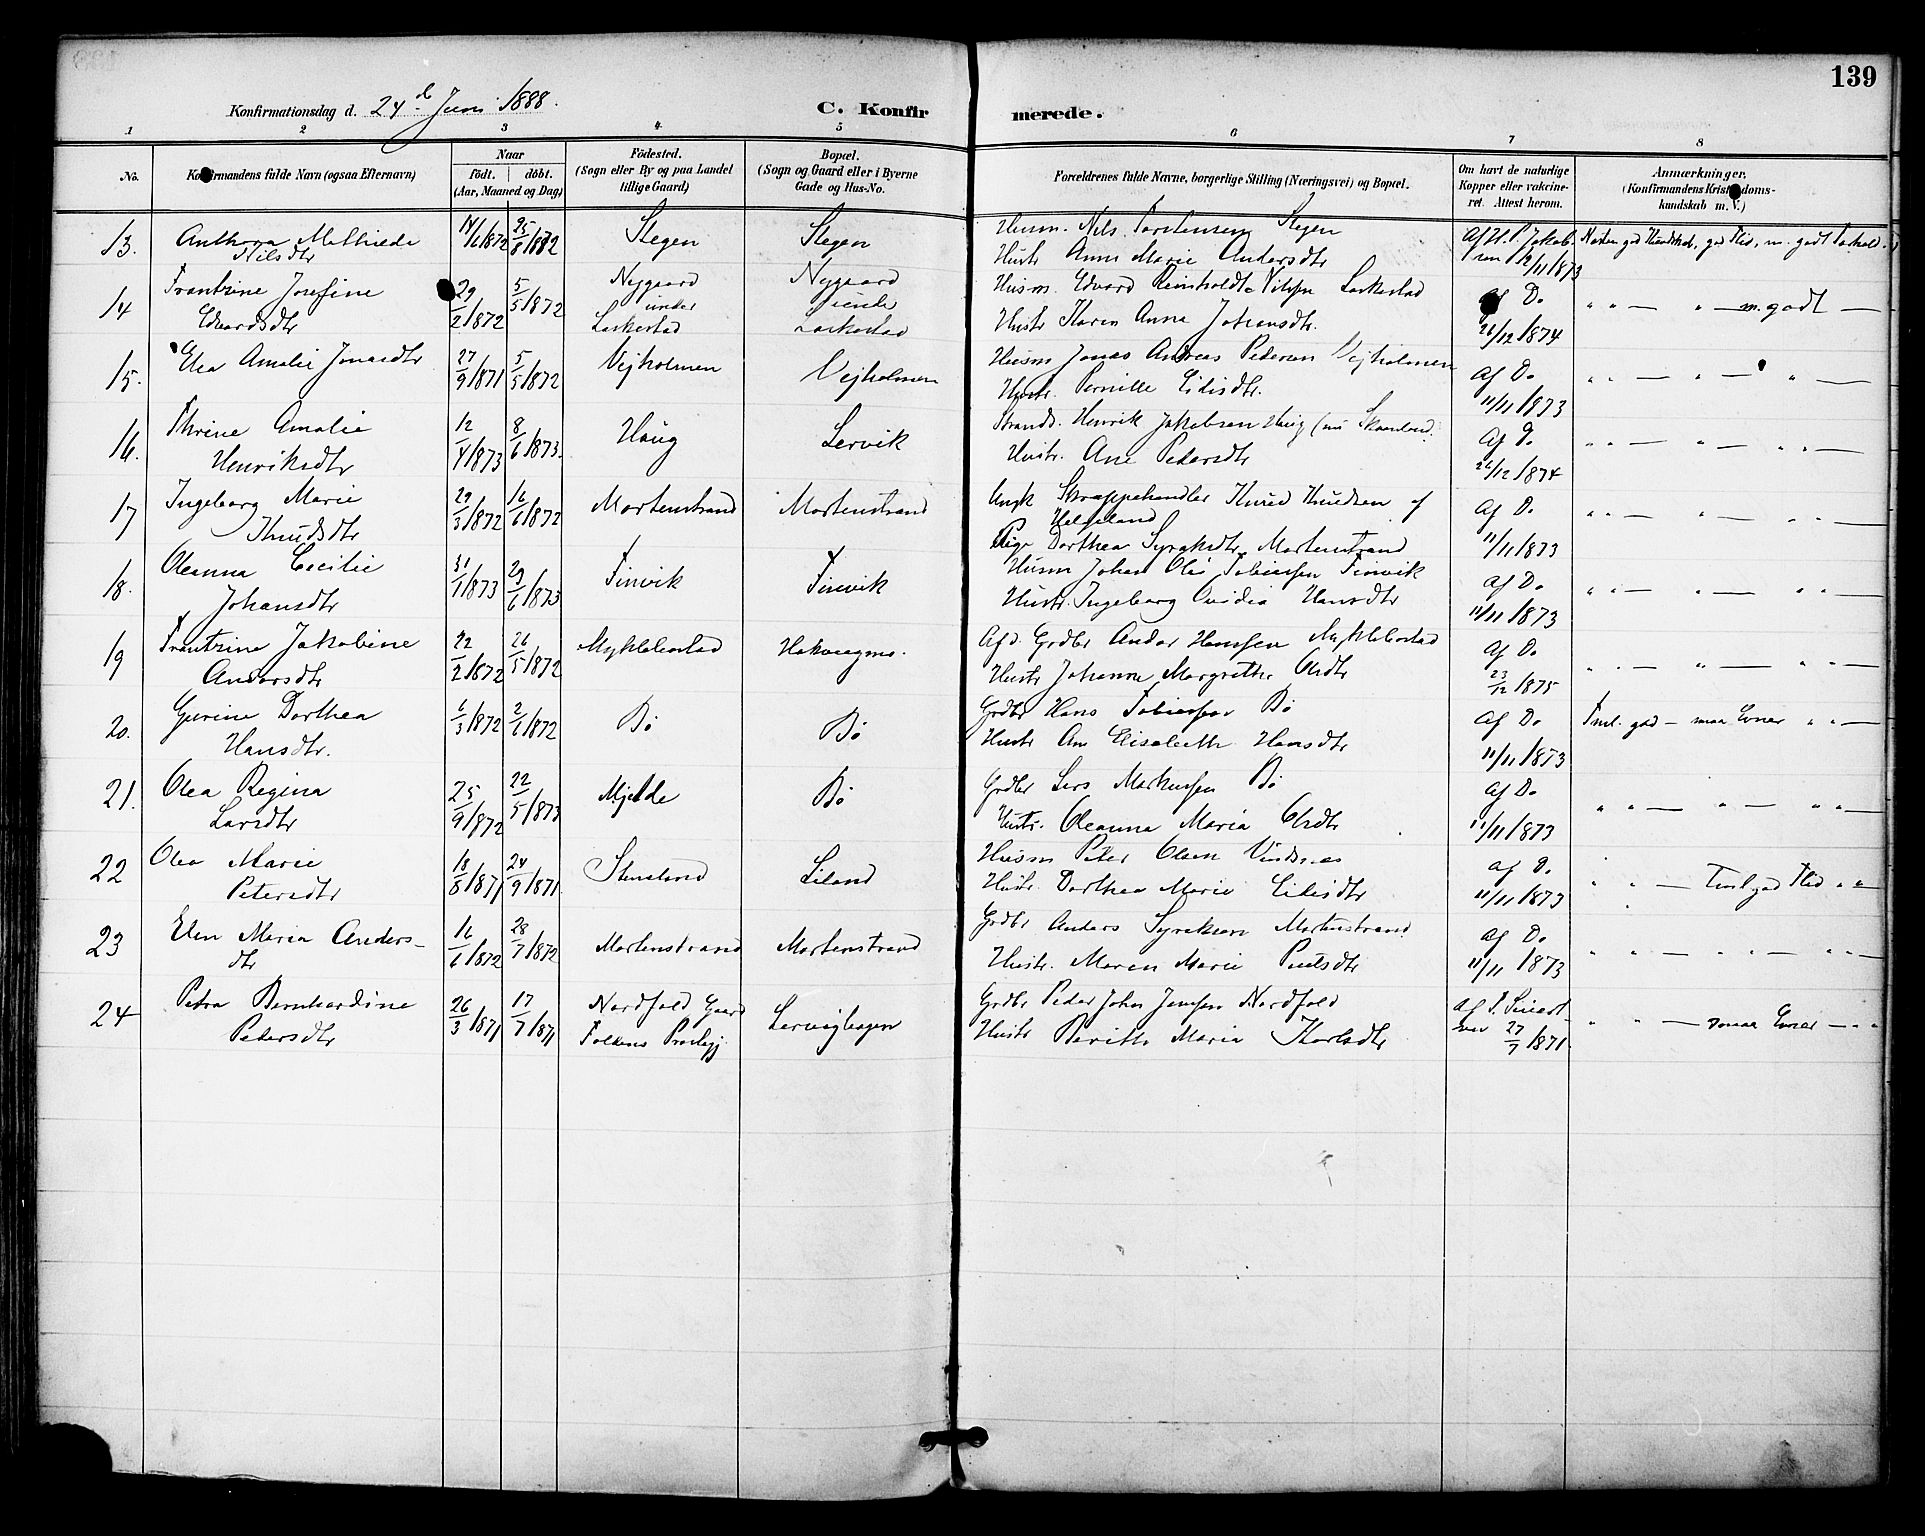 139
Konfirmationsdag d. 24d Juni 1888.
C. Konfirmerede.
1 2 3 4 5 6 7 8
No.
Konfirmandens fulde Navn (ogsaa Efternavn)
Naar
Født. døbt.
(Aar, Maaned og Dag)
Fødested.
(Sogn eller By og paa Landet
tillige Gaard)
Bopæl.
(Sogn og Gaard eller i Byerne
Gade og Hus-No.
Forældrenes fulde Navne, borgerlige Stilling (Næringsvei) og Bopæl.
Om havt de naturlige
Kopper eller vakcine-
ret. Attest herom.
Anmærkninger.
(Konfirmandens Kristendoms-
kundskab m. V.)
13. Anthona Mathilde 14/6 1872 Stegen Stegen Husm. Nils Torstensen Stegen Af H. P. Jakob-
Nilsdtr Hustr Anne Marie Andersdtr sen 12/11 1873
14 Frantzine Josefine 29/2 1872 5/5 1872 Nygaard Nygaard Husm. Edvard Reinholdt Nilssen Laskestad Af Do " " — " — m. godt —
Edvardsdtr under under Hustr Karen Anna Johansdtr. 26/12 1874
Laskestad Laskestad
15. Elea Amalie Jonasdtr 27/9 1871 5/5 1872 Vejholmen Vejholmen Husm Jonas Andreas Pedersen Vejholmen Af Do " " — " — " —
Hustr. Pernille Eidisdtr. 11/11 1873
16. Thrine Amalie 12/4 1873 8/6 1873. Haug Lervik Strands. Henrik Jakobsen Haug (nu Skaanland. Af Do " " — " — " " —
Henriksdtr Hustr. Ane Pedersdtr 26/12 1874
17 Ingeborg Marie 29/3 1872 16/6 1872 Mortenstrand Mortenstrand Ungk Skræppehandler Knud Knudsen af Af Do " " — " — " " —
Knudsdtr Helgeland 11/11 1873
Pige Dorthea Syraksdtr Mortenstrand
18. Oleanna Cecilie 31/1 1873 29/6 1873 Finvik Finvik Husm Johan Olai Tobiassen Finvik Af Do " " — " — " " —
Johansdtr Hustr. Ingeborg Ovidia Hansdtr 11/11 1873
19 Frantzine Jakobine 22/2 1872 26/5 1872 Myklebostad Afd. Grdbr Andor Hanssen Myklebostad Af Do " " — " — " " —
Andorsdtr Hustr Johanna Margrethe Olsdtr 23/12 1875
20. Gurine Dorthea 6/3 1872 2/6 1872 Bø Bø Grdbr Hans Tobiassen Bø Af Do Tml. god — maa Evner " " —
Hansdtr. Hustr Ane Elisabeth Hansdtr 11/11 1873
21. Olea Regina 25/9 1872 22/5 1873 Mjelde Bø Grdbr Lars Markussen Bø Af Do " " — " — " " —
Larsdtr Hustr. Oleanna Maria Olsdtr 11/11 1873
22 Olea Marie 18/8 1871 24/9 1871. Stensland Liland Husm Peter Olsen Vindsnes Af Do " " — Tml god Flid " "
Petersdtr Hustr. Dorthea Marie Eidisdtr 11/11 1873
23 Elen Maria Anders- 16/6 1872 28/7 1872 Mortenstrand Mortenstrand Grdbr Anders Syraksen Mortenstrand Af Do " " — " " — " " —
dtr Hustr. Maren Marie Poulsdtr 11/11 1873
24 Petra Bernhardine 26/3 1871 17/7 1871 Nordfold Gaard Grdbr Peder John Jenssen Nordfold Af P. Sivert- " " — smaa Evner — " "
Petersdtr Foldens Hustr Berith Maria Karlsdtr sen 27/7 1871.